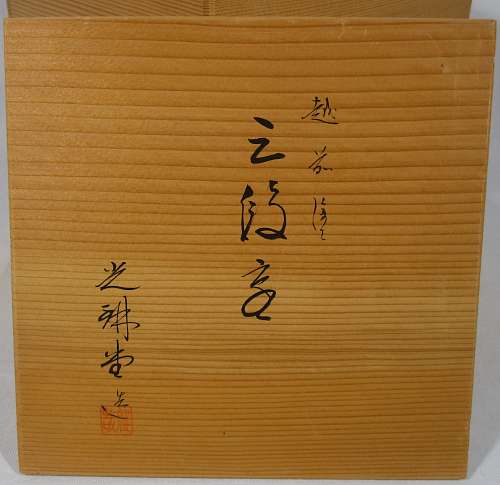 越前塗
三段重
光琳堂造